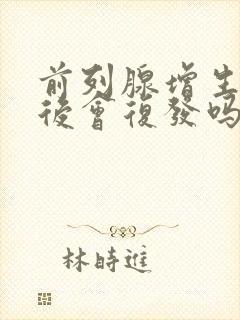 前列腺增生
後會復發吗
林時進